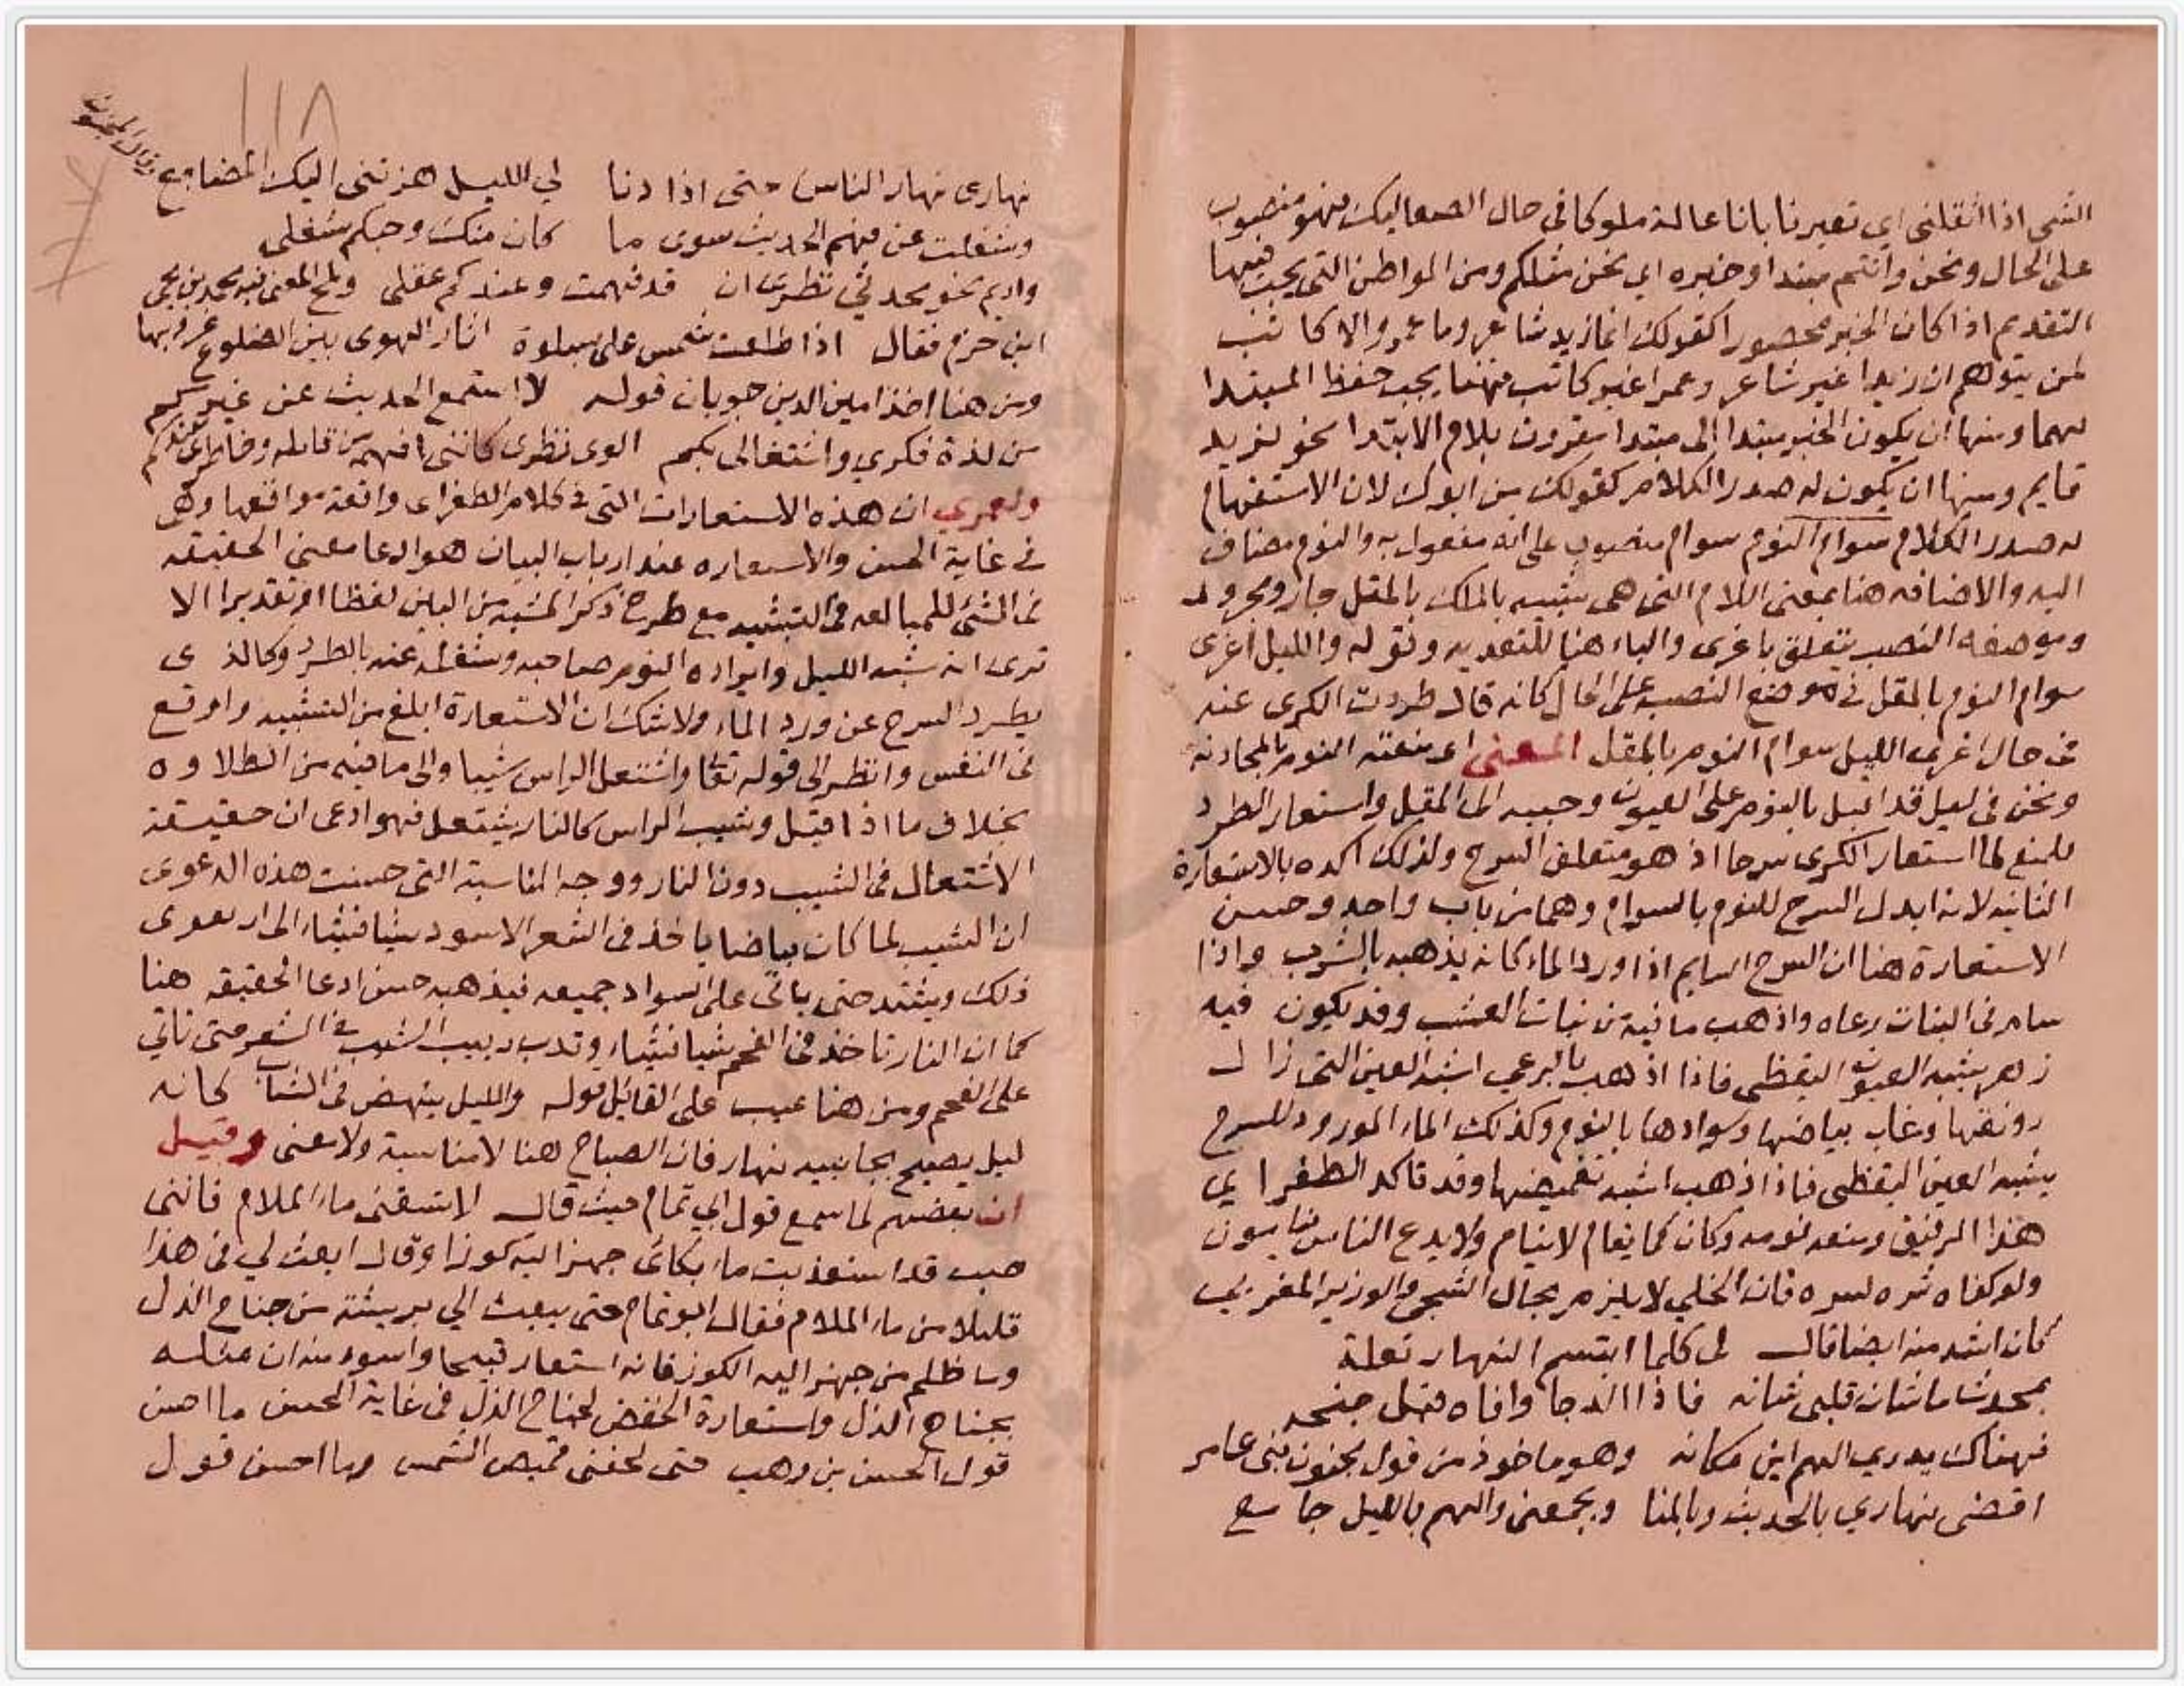 الشى اذا اثقلنى اى تعيرنا باننا عالة ملوكا فى حال الصعاليك فهو منصوب
على الحال ونحن وانتم مبتدا وخبره اى نحن مثلكم ومن المواطن التى يجب فيها
التقديم اذا كان الخبر محصورا كقولك انما زيد شاعر وما عمرو الا كاتب
لمن يتوهم ان زيدا غير شاعر وعمرا غير كاتب فهنا يجب حفظ المبتدا
لهما ومنها ان يكون الخبر مبتدا الى مبتدا مقرون بلام الابتدا نحو لزيد
قايم ومنها ان يكون له صدر الكلام كقولك من ابوك لان الاستفهام
له صدر الكلام سوام النوم سوام منصوب على انه مفعول به والنوم مضاف
اليه والاضافه هنا بمعنى اللام التى هى شبيه بالملك بالمقل جار ومجرور
وموضعه النصب يتعلق باغرى والباء هنا للتعديه وقوله والليل اغرى
سوام النوم بالمقل فى موضع النصب على الحال كانه قال طردت الكرى عنه
فى حال اغرى الليل سوام النوم بالمقل المعنى اى منعته النوم بالمحادثه
ونحن فى ليل قد اقبل بالنوم على العيون وحببه الى المقل واستعار الطرد
للمنع لما استعار الكرى سرحا اذ هو متعلق السرح ولذلك اكده بالاستعارة
الثانيه لانه ابدل السرح للنوم بالسوام وهما من باب واحد وحسن
الاستعارة هنا ان السرح السايم اذا ورد الماء كانه يذهبه بالشرب واذا
سامر فى النبات رعاه واذهب ما فيه من نبات العشب وقد يكون فيه
زهر يشبه العيون اليقظى فاذا اذهب بالرعى اشبه العين التى زال
رونقها وغاب بياضها وسوادها بالنوم وكذلك الماء المورود للسرح
يشبه العين اليقظى فاذا اذهب اشبه تغميضها وقد تاكد الطغراى
هذا الرفيق ومنعه نومه وكان كما يقام لا ينام ولا يدع الناس ينامون
ولو كفاه شره لسره فان الخلي لا يلزم بحال الشجى والوزير المغربى
كان اشد منه ايضا قال لى كلما ابتسم النهار تعلة
بمحدث ما شان قلبى شانه فاذا الدجا وافاه جنحه
فهناك يدرى الهم اين مكانه وهو ماخوذ من قول مجنون بنى عامر
اقضى نهاري بالحديث وبالمنا ويجمعنى والهم بالليل جامع
نهارى نهار الناس حتى اذا دنا لي الليل هزتنى اليك المضاجع
وشغلت عن فهم الحديث سوى ما كان منك وحبكم شغلى
واديم نحو محدثي نظرى ان قد فهمت وعندكم عقلى ولمح المعنى
ابن حزم فقال اذا طلعت شمس على بسلوة اثار الهوى بين الضلوع غروبها
ومن هنا اخذ امين الدين جوبان قوله لا استمع الحديث عن غيركم
من لذة فكري واشتغالى بكم الوى نظرى كاننى افهم من قايله وخاطرى عندكم
ولعمري ان هذه الاستعارات التى فى كلام الطغراى واقعة مواقعها وهى
فى غاية الحسن والاستعاره عند ارباب البيان هو ادعا معنى الحقيقه
فى الشئ للمبالغه فى التشبيه مع طرح ذكر المشبه من البين لفظا او تقديرا الا
ترى انه شبه الليل وايراده النوم صاحبه وشغله عنه بالطرد وكالذى
يطرد السرح عن ورد الماء ولا شك ان الاستعارة ابلغ من التشبيه واوقع
فى النفس وانظر الى قوله تعالى واشتعل الراس شيبا والى ما فيه من الطلاوه
بخلاف ما اذا قيل وشيب الراس كالنار يشتعل فهو ادعى ان حقيقة
الاشتعال فى الشيب دون النار ووجه المناسبة التى حسنت هذه الدعوى
ان الشيب لما كان بياضا ياخذ فى الشعر الاسود شيا فشياء الى ان يعرى
ذلك ويشتد حتى ياتى على السواد جميعه فيذهبه حسن ادعا الحقيقه هنا
كما ان النار تاخذ فى الفحم شيا فشياء وتدب دبيب الشيب فى الشعر حتى تاتي
على الفحم ومن هنا عيب على القائل قوله والليل ينهض فى الشباب كانه
ليل يصيح بجانبيه نهار فان الصباح هنا لا مناسبة ولا معنى وقيل
ان بعضهم لما سمع قول ابي تمام حيث قال لا تسقنى ماء الملام فاننى
صب قد استعذبت ماء بكائى جهز اليه كوزا وقال ابعث لي فى هذا
قليلا من ماء الملام فقال ابو تمام حتى يبعث الي بريشة من جناح الذل
وما ظلم من جهز اليه الكوز فانه استعار قبيحا واسوء منه ان مثله
بجناح الذل واستعارة الخفض لجناح الذل فى غاية الحسن ما احسن
قول الحسن بن وهب حتى لحفنى قميص الشمس وما احسن قول